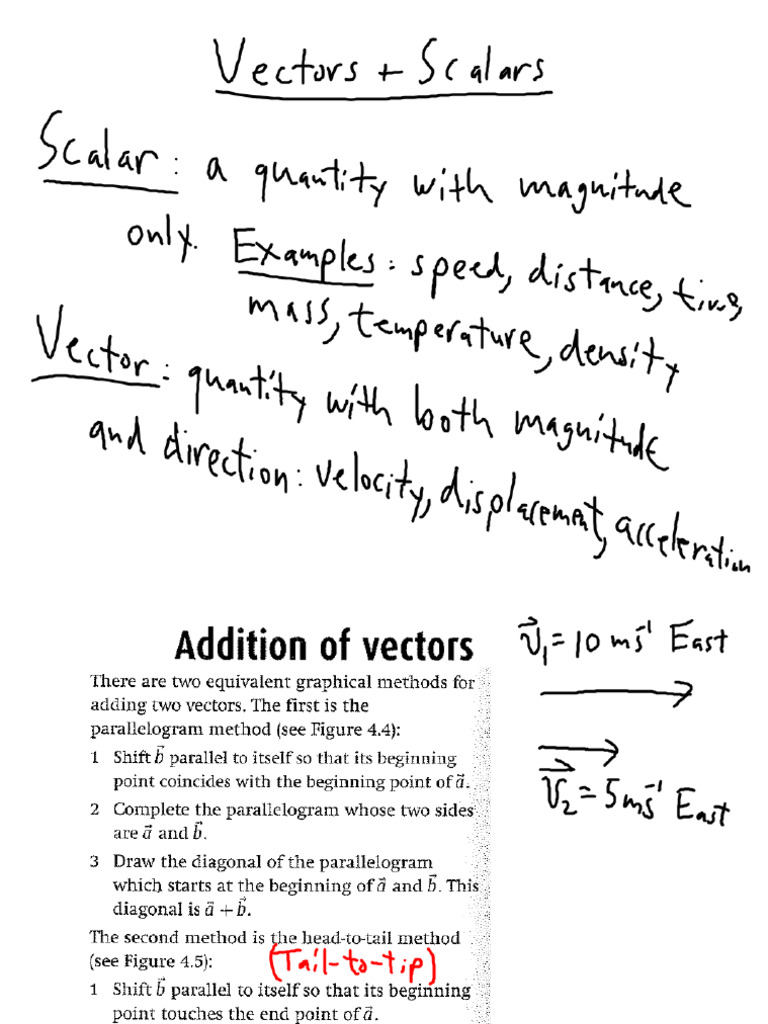 Vectors + Scalars
Scalar: a quantity with magnitude
only. Examples: speed, distance, time,
mass, temperature, density
Vector: quantity with both magnitude
and direction: velocity, displacement, acceleration
Addition of vectors
There are two equivalent graphical methods for
adding two vectors. The first is the
parallelogram method (see Figure 4.4):
1 Shift b⃗ parallel to itself so that its beginning
point coincides with the beginning point of a⃗.
2 Complete the parallelogram whose two sides
are a⃗ and b⃗.
3 Draw the diagonal of the parallelogram
which starts at the beginning of a⃗ and b⃗. This
diagonal is a⃗ + b⃗.
The second method is the head-to-tail method
(see Figure 4.5): (Tail-to-tip)
1 Shift b⃗ parallel to itself so that its beginning
point touches the end point of a⃗.
v⃗₁ = 10 ms⁻¹ East
v⃗₂ = 5 ms⁻¹ East